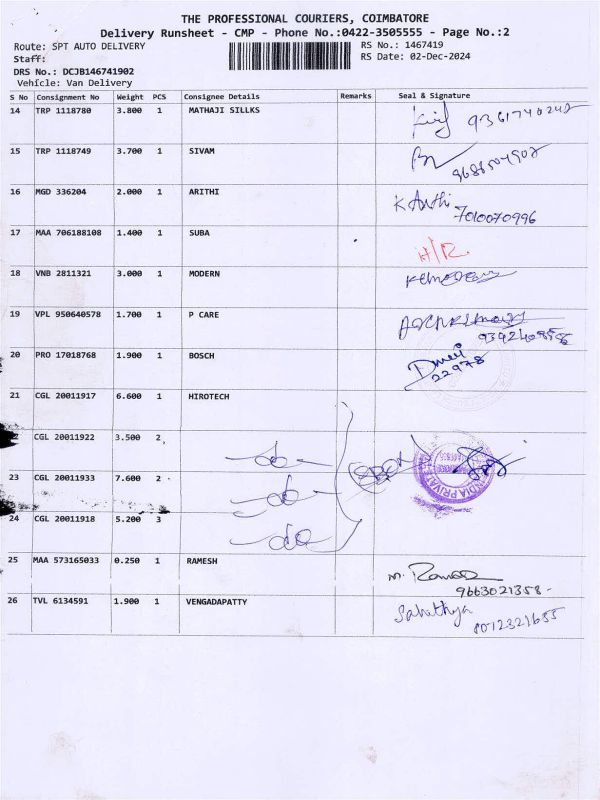 THE PROFESSIONAL COURIERS, COIMBATORE
Delivery Runsheet - CMP - Phone No.:0422-3505555 - Page No.:2
Route: SPT AUTO DELIVERY RS No.: 1467419
Staff: RS Date: 02-Dec-2024
DRS No.: DCJB146741902
Vehicle: Van Delivery
S No Consignment No Weight PCS Consignee Details Remarks Seal & Signature
14 TRP 1118780 3.800 1 MATHAJI SILLKS 9361740242
15 TRP 1118749 3.700 1 SIVAM
16 MGD 336204 2.000 1 ARITHI K Arithi
7010070996
17 MAA 706188108 1.400 1 SUBA H/R
18 VNB 2811321 3.000 1 MODERN
19 VPL 950640578 1.700 1 P CARE
20 PRO 17018768 1.900 1 BOSCH
22978
21 CGL 20011917 6.600 1 HIROTECH
22 CGL 20011922 3.500 2 do
23 CGL 20011933 7.600 2 do
24 CGL 20011918 5.200 3 do
25 MAA 573165033 0.250 1 RAMESH
9663021358
26 TVL 6134591 1.900 1 VENGADAPATTY Sahithya
8012321655